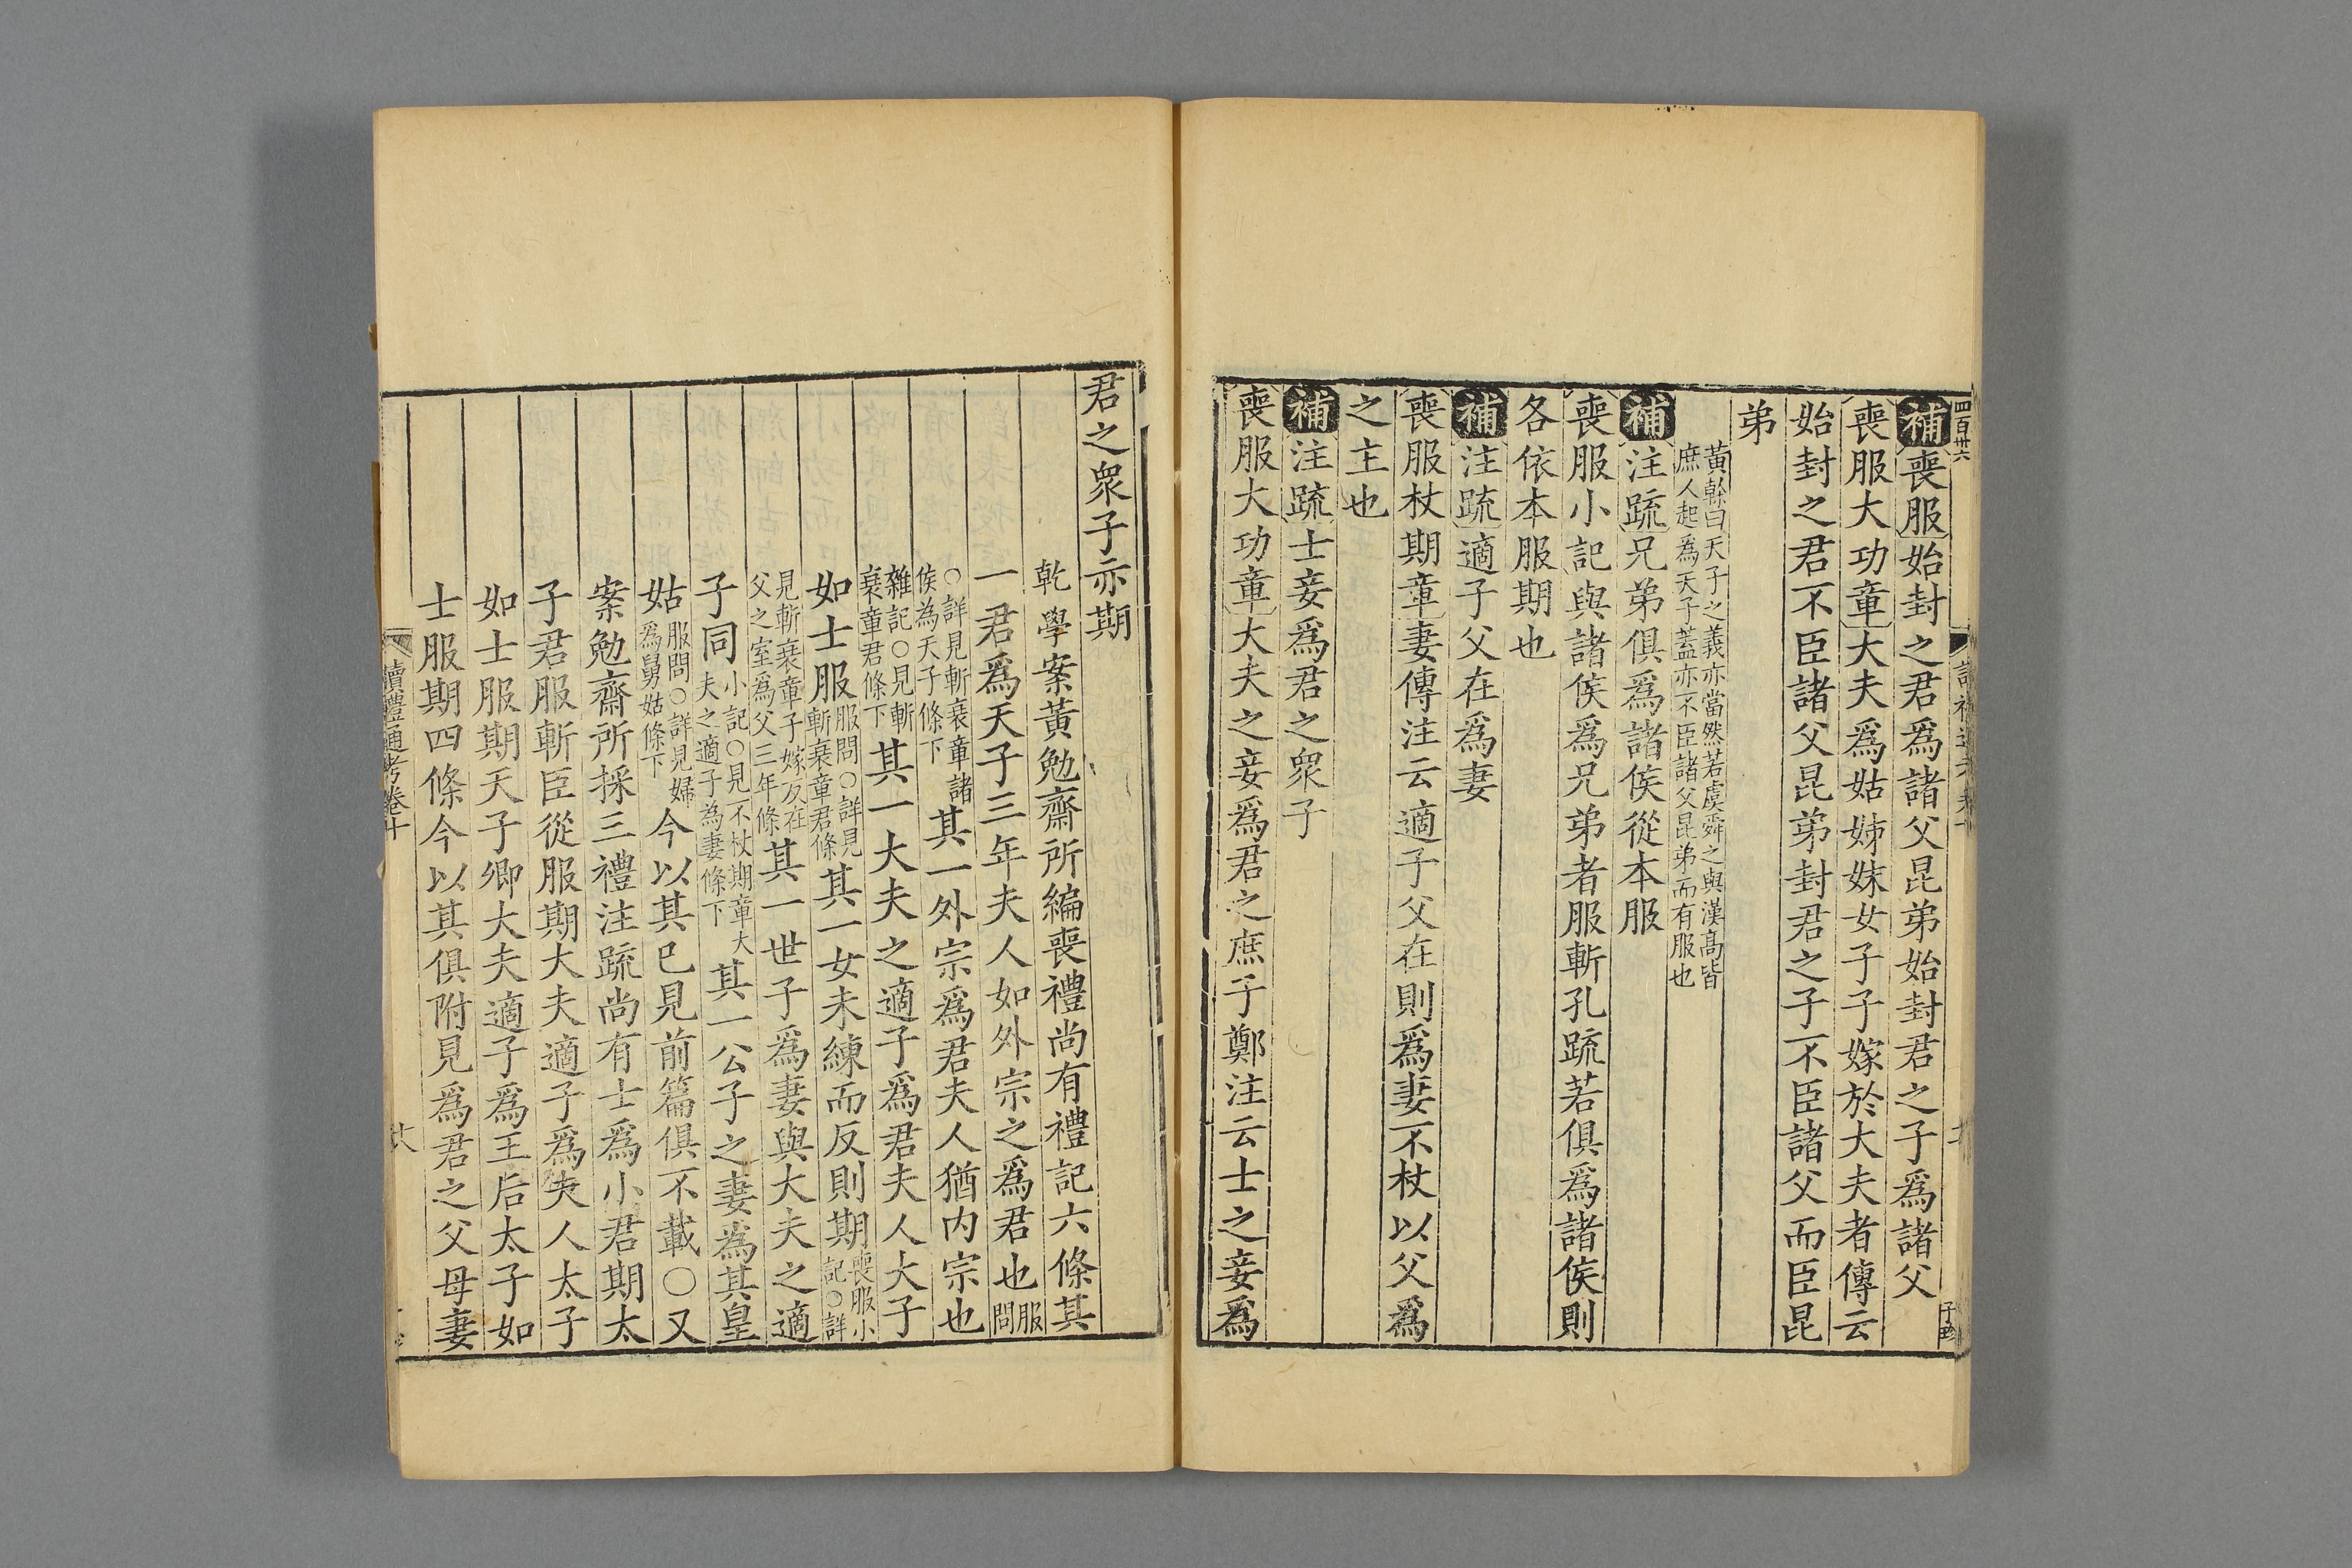 四百卅六
補喪服始封之君爲諸父昆弟始封君之子爲諸父
喪服大功章大夫爲姑姊妹女子子嫁於大夫者傳云
始封之君不臣諸父昆弟封君之子不臣諸父而臣昆
弟
黃榦曰天子之義亦當然若虞舜之與漢高皆
庶人起爲天子蓋亦不臣諸父昆弟而有服也
補注疏兄弟俱爲諸侯從本服
喪服小記與諸侯爲兄弟者服斬孔疏若俱爲諸侯則
各依本服期也
補注疏適子父在爲妻
喪服杖期章妻傳注云適子父在則爲妻不杖以父爲
之主也
補注疏士妾爲君之衆子
喪服大功章大夫之妾爲君之庶子鄭注云士之妾爲
君之衆子亦期
乾學案黃勉齋所編喪禮尚有禮記六條其
一君爲天子三年夫人如外宗之爲君也服問
○詳見斬衰章諸侯為天子條下其一外宗爲君夫人猶内宗也
雜記○見斬衰章君條下其一大夫之適子爲君夫人大子
如士服服問○詳見斬衰章君條其一女未練而反則期喪服小記○詳
見斬衰章子嫁反在父之室爲父三年條其一世子爲妻與大夫之適
子同小記○見不杖期章大夫之適子為妻條下其一公子之妻為其皇
姑服問○詳見婦爲舅姑條下今以其已見前篇俱不載○又
案勉齋所採三禮注疏尚有士爲小君期太
子君服斬臣從服期大夫適子爲夫人太子
如士服期天子卿大夫適子爲王后太子如
士服期四條今以其俱附見爲君之父母妻
讀禮通考卷十